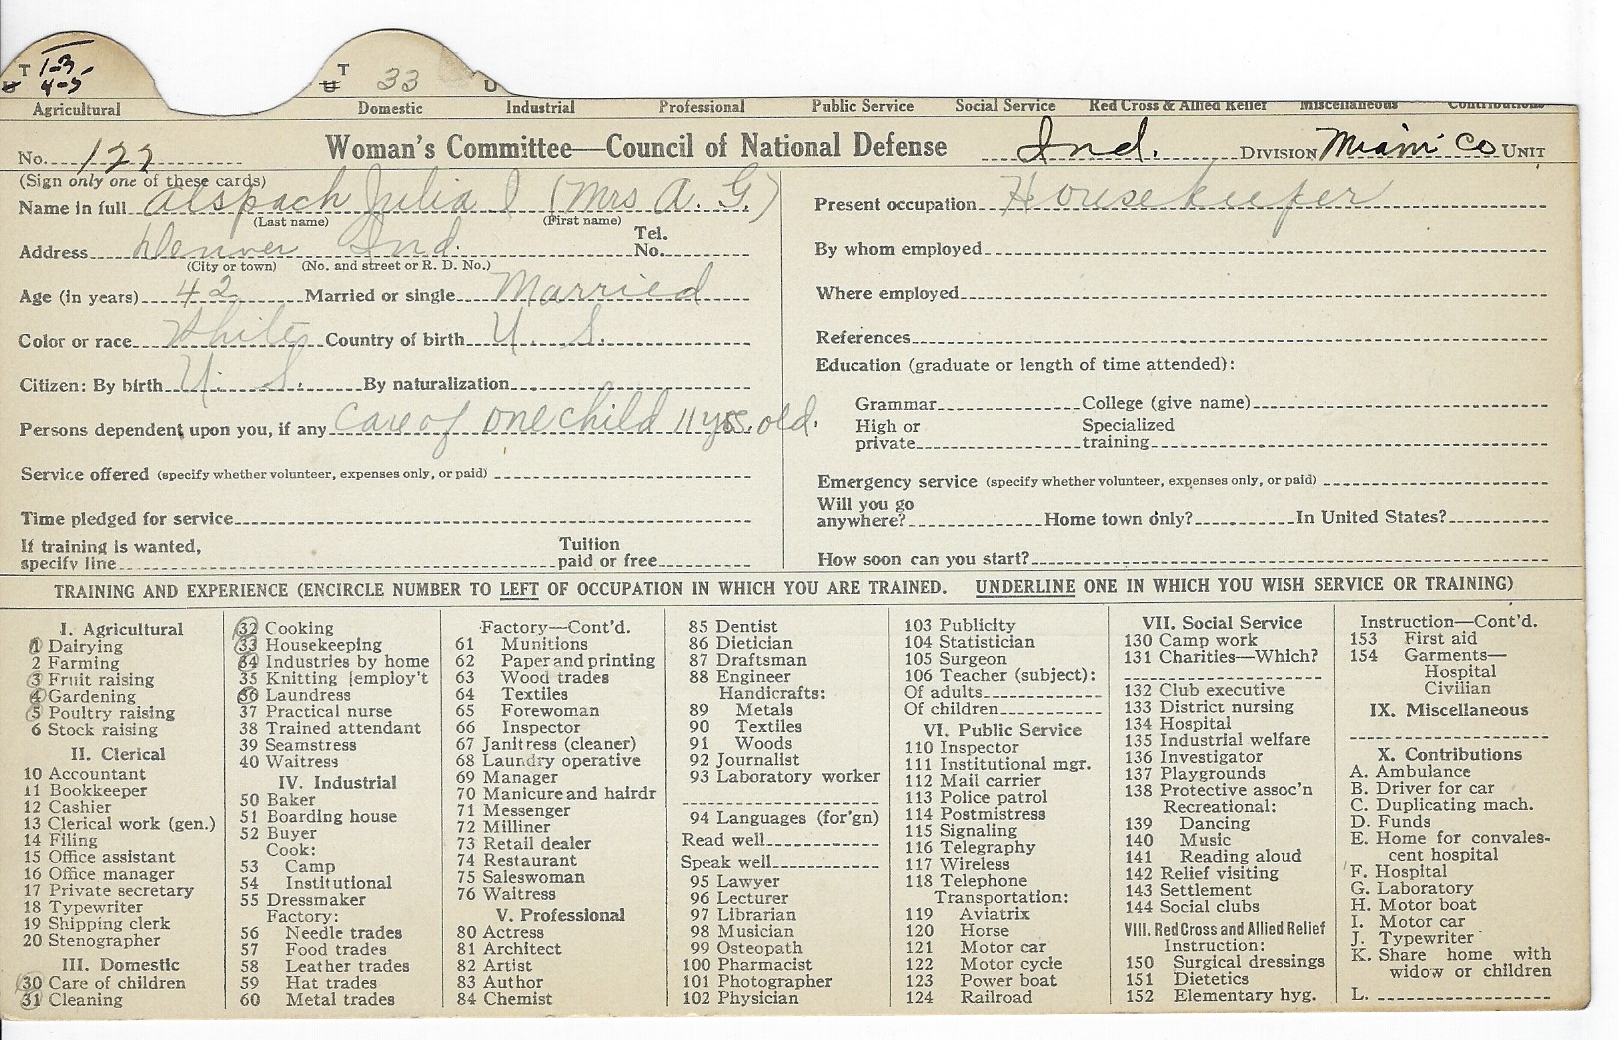 T 1-3
U 4-5
T 33
U
U
Agricultural Domestic Industrial Professional Public Service Social Service Red Cross & Allied Relief Miscellaneous Contributions
No. 122 Woman's Committee—Council of National Defense Ind. DIVISION Miami Co UNIT
(Sign only one of these cards)
Name in full Alspach Julia I (Mrs A. G.)
(Last name) (First name)
Address Denver Ind. Tel. No.
(City or town) (No. and street or R. D. No.)
Age (in years) 42 Married or single Married
Color or race White Country of birth U. S.
Citizen: By birth U. S. By naturalization
Persons dependent upon you, if any Care of one child 11 yrs. old.
Service offered (specify whether volunteer, expenses only, or paid)
Time pledged for service
If training is wanted, Tuition
specify line paid or free
Present occupation Housekeeper
By whom employed
Where employed
References
Education (graduate or length of time attended):
Grammar College (give name)
High or Specialized
private training
Emergency service (specify whether volunteer, expenses only, or paid)
Will you go
anywhere? Home town only? In United States?
How soon can you start?
TRAINING AND EXPERIENCE (ENCIRCLE NUMBER TO LEFT OF OCCUPATION IN WHICH YOU ARE TRAINED. UNDERLINE ONE IN WHICH YOU WISH SERVICE OR TRAINING)
I. Agricultural
1 Dairying
2 Farming
3 Fruit raising
4 Gardening
5 Poultry raising
6 Stock raising
II. Clerical
10 Accountant
11 Bookkeeper
12 Cashier
13 Clerical work (gen.)
14 Filing
15 Office assistant
16 Office manager
17 Private secretary
18 Typewriter
19 Shipping clerk
20 Stenographer
III. Domestic
30 Care of children
31 Cleaning
32 Cooking
33 Housekeeping
34 Industries by home
35 Knitting [employ't
36 Laundress
37 Practical nurse
38 Trained attendant
39 Seamstress
40 Waitress
IV. Industrial
50 Baker
51 Boarding house
52 Buyer
Cook:
53 Camp
54 Institutional
55 Dressmaker
Factory:
56 Needle trades
57 Food trades
58 Leather trades
59 Hat trades
60 Metal trades
Factory—Cont'd.
61 Munitions
62 Paper and printing
63 Wood trades
64 Textiles
65 Forewoman
66 Inspector
67 Janitress (cleaner)
68 Laundry operative
69 Manager
70 Manicure and hairdr
71 Messenger
72 Milliner
73 Retail dealer
74 Restaurant
75 Saleswoman
76 Waitress
V. Professional
80 Actress
81 Architect
82 Artist
83 Author
84 Chemist
85 Dentist
86 Dietician
87 Draftsman
88 Engineer
Handicrafts:
89 Metals
90 Textiles
91 Woods
92 Journalist
93 Laboratory worker
94 Languages (for'gn)
Read well
Speak well
95 Lawyer
96 Lecturer
97 Librarian
98 Musician
99 Osteopath
100 Pharmacist
101 Photographer
102 Physician
103 Publicity
104 Statistician
105 Surgeon
106 Teacher (subject):
Of adults
Of children
VI. Public Service
110 Inspector
111 Institutional mgr.
112 Mail carrier
113 Police patrol
114 Postmistress
115 Signaling
116 Telegraphy
117 Wireless
118 Telephone
Transportation:
119 Aviatrix
120 Horse
121 Motor car
122 Motor cycle
123 Power boat
124 Railroad
VII. Social Service
130 Camp work
131 Charities—Which?
132 Club executive
133 District nursing
134 Hospital
135 Industrial welfare
136 Investigator
137 Playgrounds
138 Protective assoc'n
Recreational:
139 Dancing
140 Music
141 Reading aloud
142 Relief visiting
143 Settlement
144 Social clubs
VIII. Red Cross and Allied Relief
Instruction:
150 Surgical dressings
151 Dietetics
152 Elementary hyg.
Instruction—Cont'd.
153 First aid
154 Garments—
Hospital
Civilian
IX. Miscellaneous
X. Contributions
A. Ambulance
B. Driver for car
C. Duplicating mach.
D. Funds
E. Home for convales-
cent hospital
F. Hospital
G. Laboratory
H. Motor boat
I. Motor car
J. Typewriter
K. Share home with
widow or children
L.